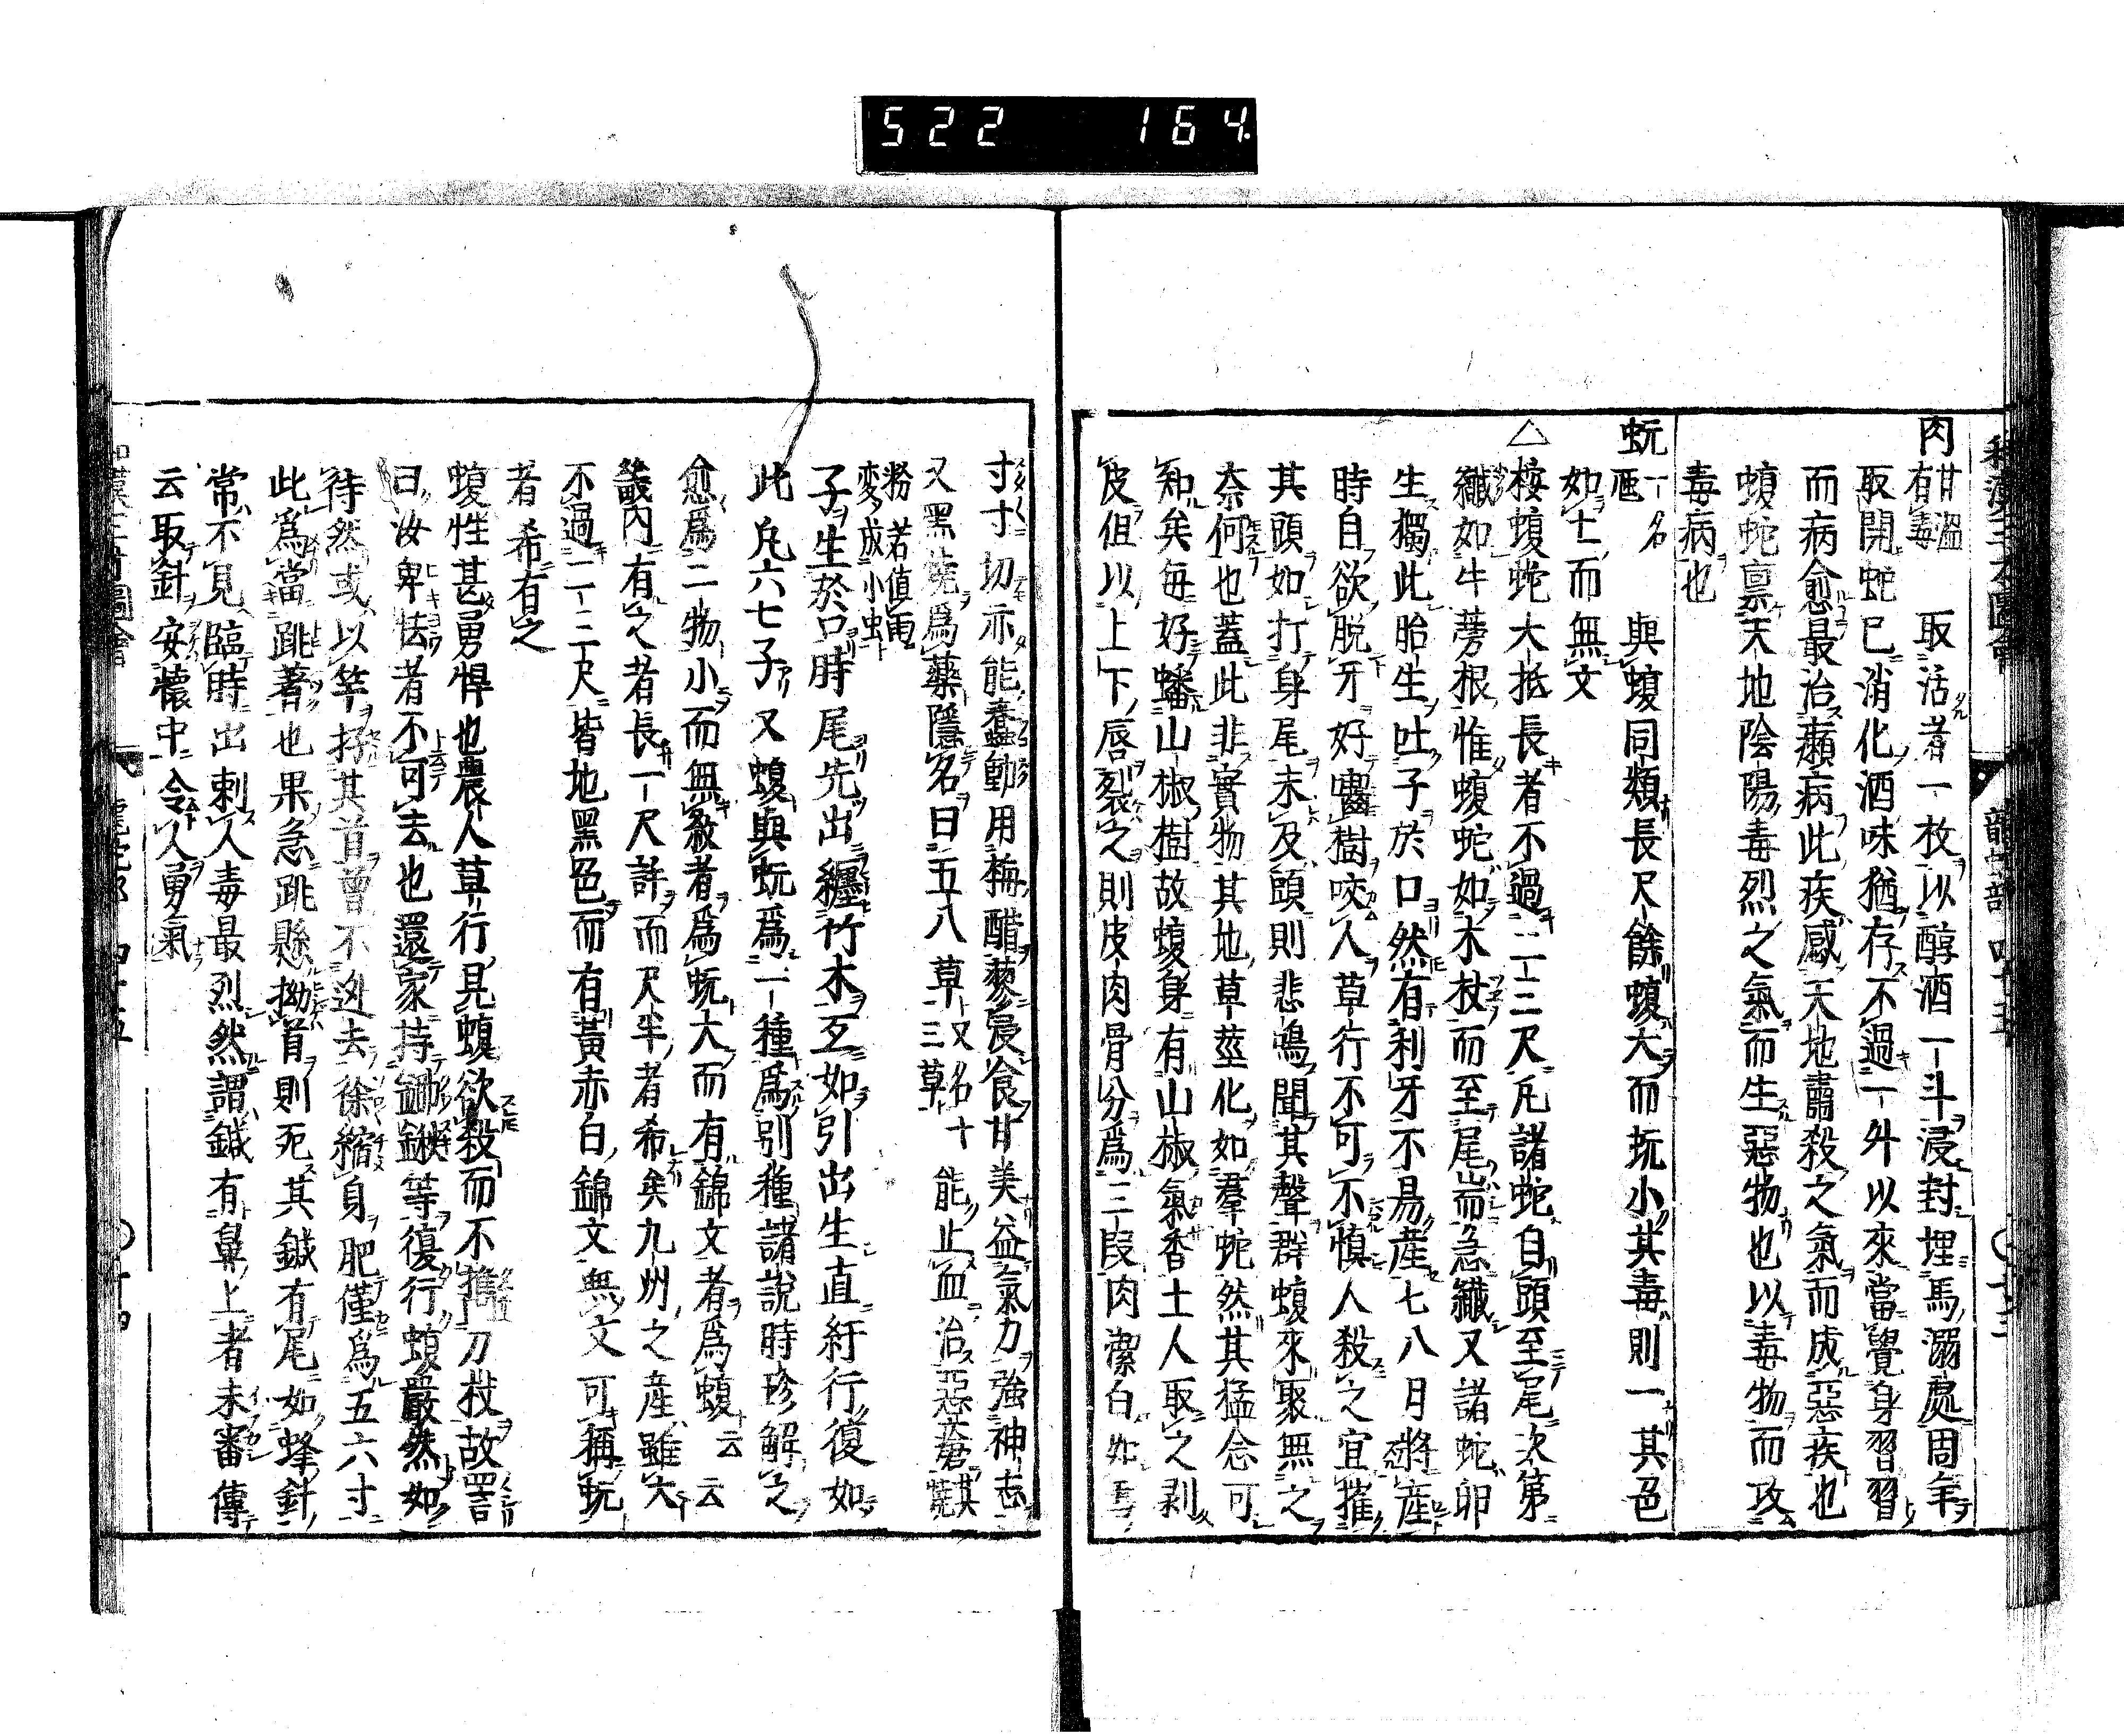 522 164
和漢三才圖會 龍蛇部 四十五
肉 甘温有毒 取活者一枚以醇酒一斗浸封埋馬溺處周年
取開蛇已消化酒味猶存不過一外以來當覺身習習
而病愈最治癩病此疾感天地肅殺之氣而成惡疾也
蝮蛇禀天地陰陽毒烈之氣而生惡物也以毒物而攻
毒病也
蚖 一名虺 與蝮同類長尺餘蝮大而蚖小其毒則一其色
如土而無文
△桉蝮蛇大抵長者不過二三尺凡諸蛇自頭至尾次第
纖如牛蒡根惟蝮蛇如木杖而至尾耑急纖又諸蛇卵
生獨此胎生吐子於口然有利牙不易產七八月將產
時自欲脫牙好嚙樹咬人草行不可不愼人殺之宜摧
其頭如打身尾未及頭則悲鳴聞其聲群蝮來聚無之
奈何也蓋此非實物其地草莖化如羣蛇然其猛念可
知矣每好蟠山椒樹故蝮身有山椒氣香土人取之剥
皮但以上下唇裂之則皮肉骨分爲三段肉潔白如雪
寸寸切亦能蠢動用梅醋蓼浸食甘美益氣力強神志
又黑燒爲藥隱名曰五八草 又名十三草 能止血治惡瘡 其燒
粉若值雨變成小蚰
子生於口時尾先出纏竹木互如引出生直紆行復如
此凡六七子又蝮與蚖爲二種爲別種諸說時珍解之
愈爲二物小而無彩者爲蚖大而有錦文者爲蝮云云
畿内有之者長一尺許而尺半者希矣九州之産雖大
不過二三尺皆地黑色而有黃赤白錦文無文可稱蚖
者希有之
蝮性甚勇悍也農人草行見蝮欲殺而不携刀杖故詈
曰汝卑怯者不可去也還家持鋤鍬等復行蝮嚴然如
待然或以竿抑其首曾不迯去徐縮身肥僅爲五六寸
此爲當跳著也果急跳懸拗首則死其鍼有尾如蜂針
常不見臨時出刺人毒最烈然謂鍼有鼻上者未審傳
云取針安懷中令人勇氣